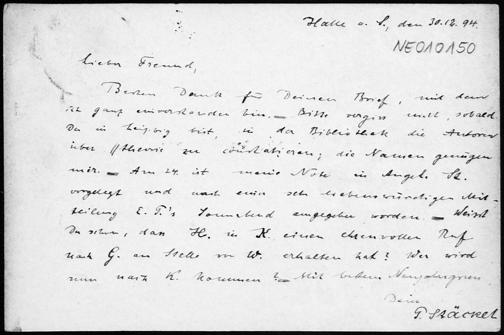 Halle a. S., den 30.12.94.
NE010150
Lieber Freund,
Besten Dank für Deinen Brief, mit dem
ich ganz einverstanden bin. — Bitte vergiss nicht, sobald
Du in Leipzig bist, in der Bibliothek die Autoren
über //theorie zu constatieren; die Namen genügen
mir. — Am 24. ist meine Note in Angel. St.
vorgelegt und nach einer sehr liebenswürdigen Mit-
teilung E. T.'s Sonnabend eingegeben worden. — Weisst
Du schon, dass H. in K. einen ehrenvollen Ruf
nach G. an Stelle von W. erhalten hat? Wer wird
nun nach K. kommen? — Mit bestem Neujahrsgruss
Dein
P. Stäckel